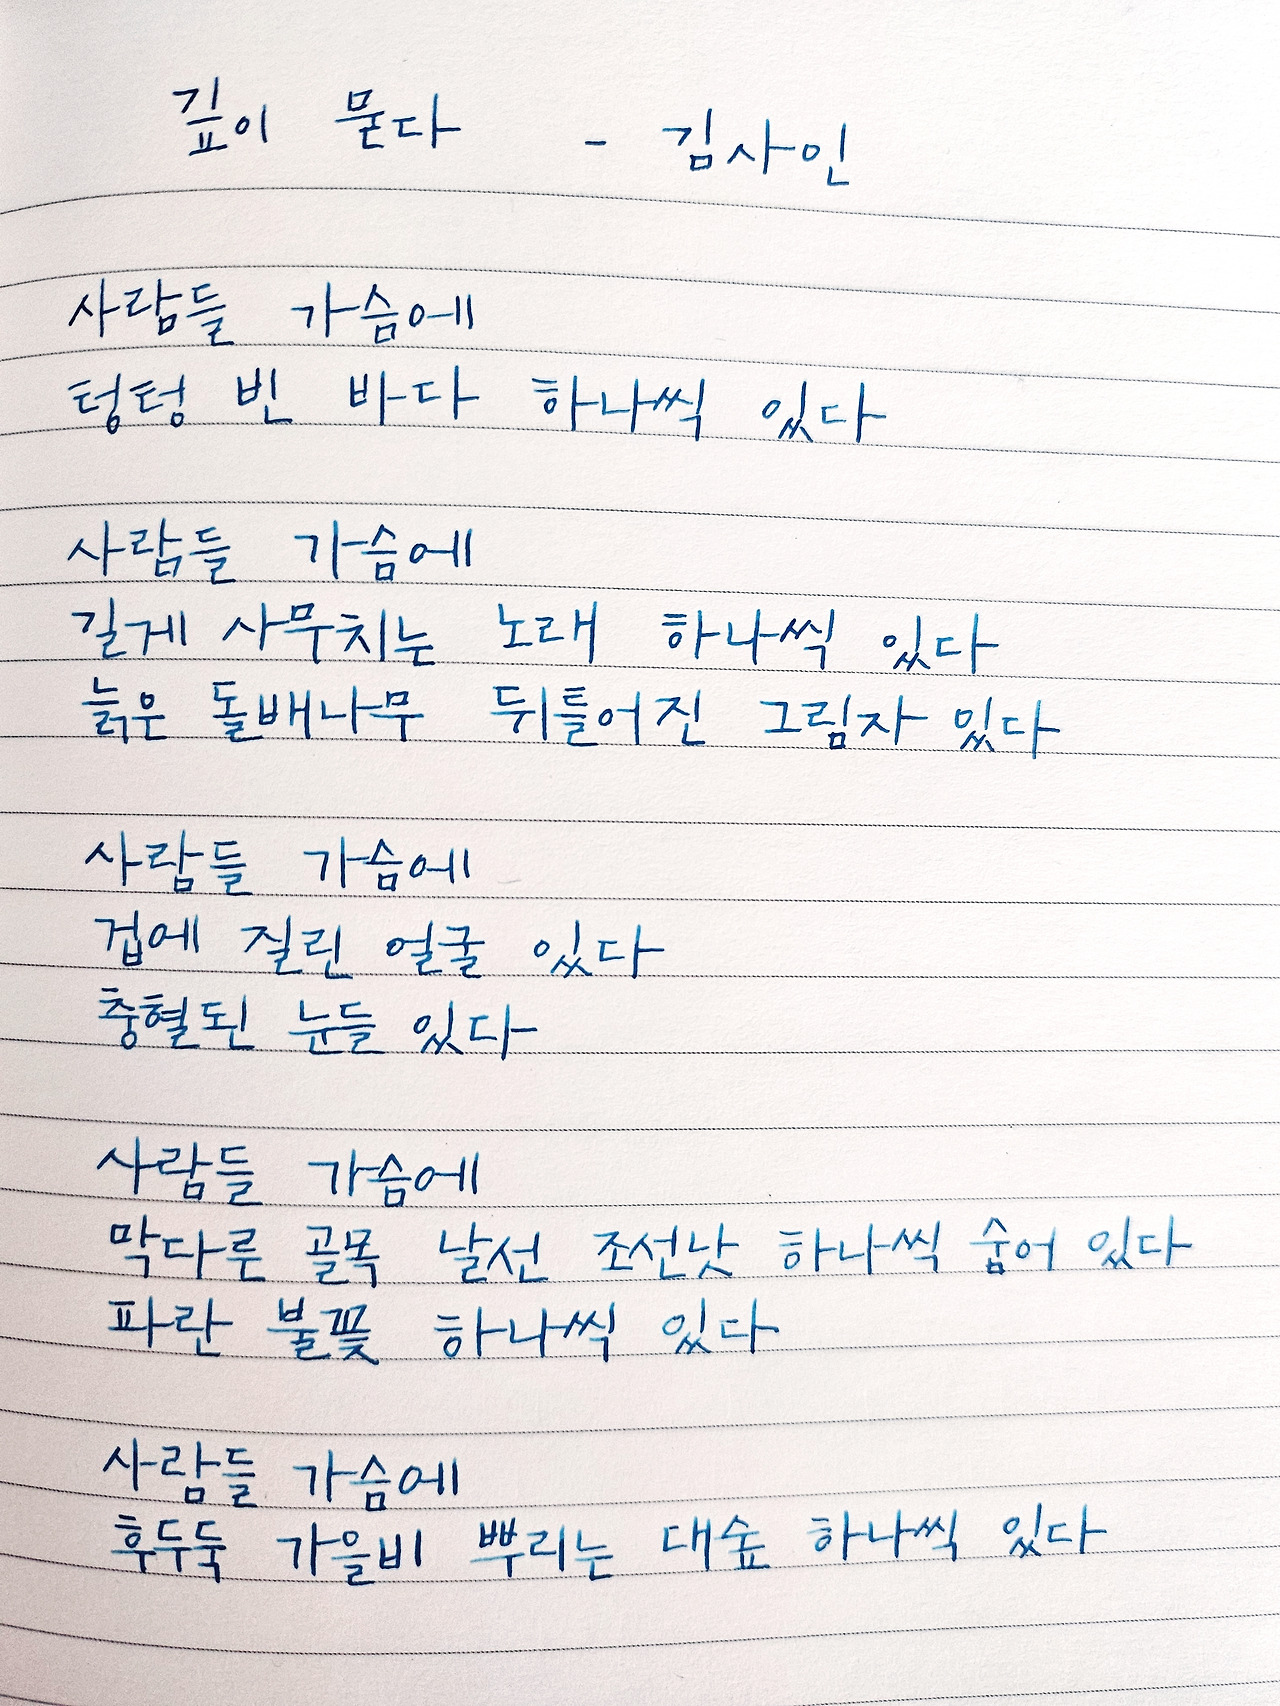 깊이 묻다 - 김사인
사람들 가슴에
텅텅 빈 바다 하나씩 있다
사람들 가슴에
길게 사무치는 노래 하나씩 있다
늙은 돌배나무 뒤틀어진 그림자 있다
사람들 가슴에
겁에 질린 얼굴 있다
충혈된 눈들 있다
사람들 가슴에
막다른 골목 날선 조선낫 하나씩 숨어 있다
파란 불꽃 하나씩 있다
사람들 가슴에
후두둑 가을비 뿌리는 대숲 하나씩 있다